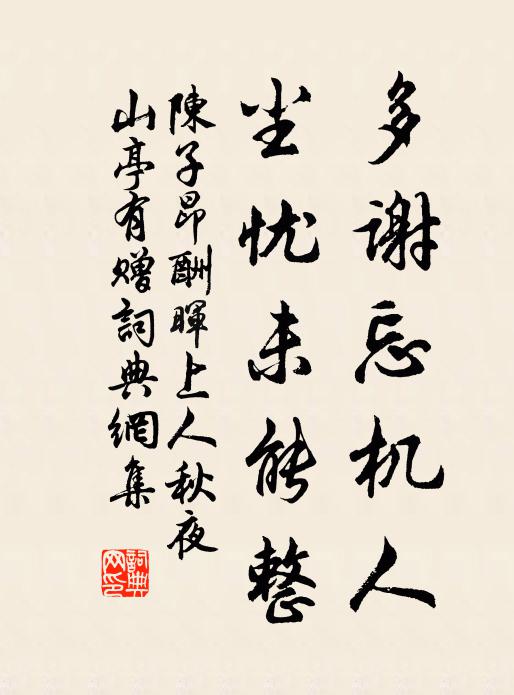 多谢忘机人
尘忧未能整
陳子昂酬暉上人秋夜
山亭有赠詞典網集
詞典网印